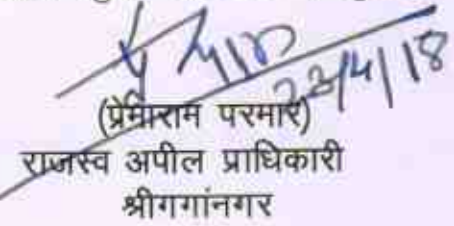 23/4/18
(प्रेमाराम परमार)
राजस्व अपील प्राधिकारी
श्रीगगांनगर